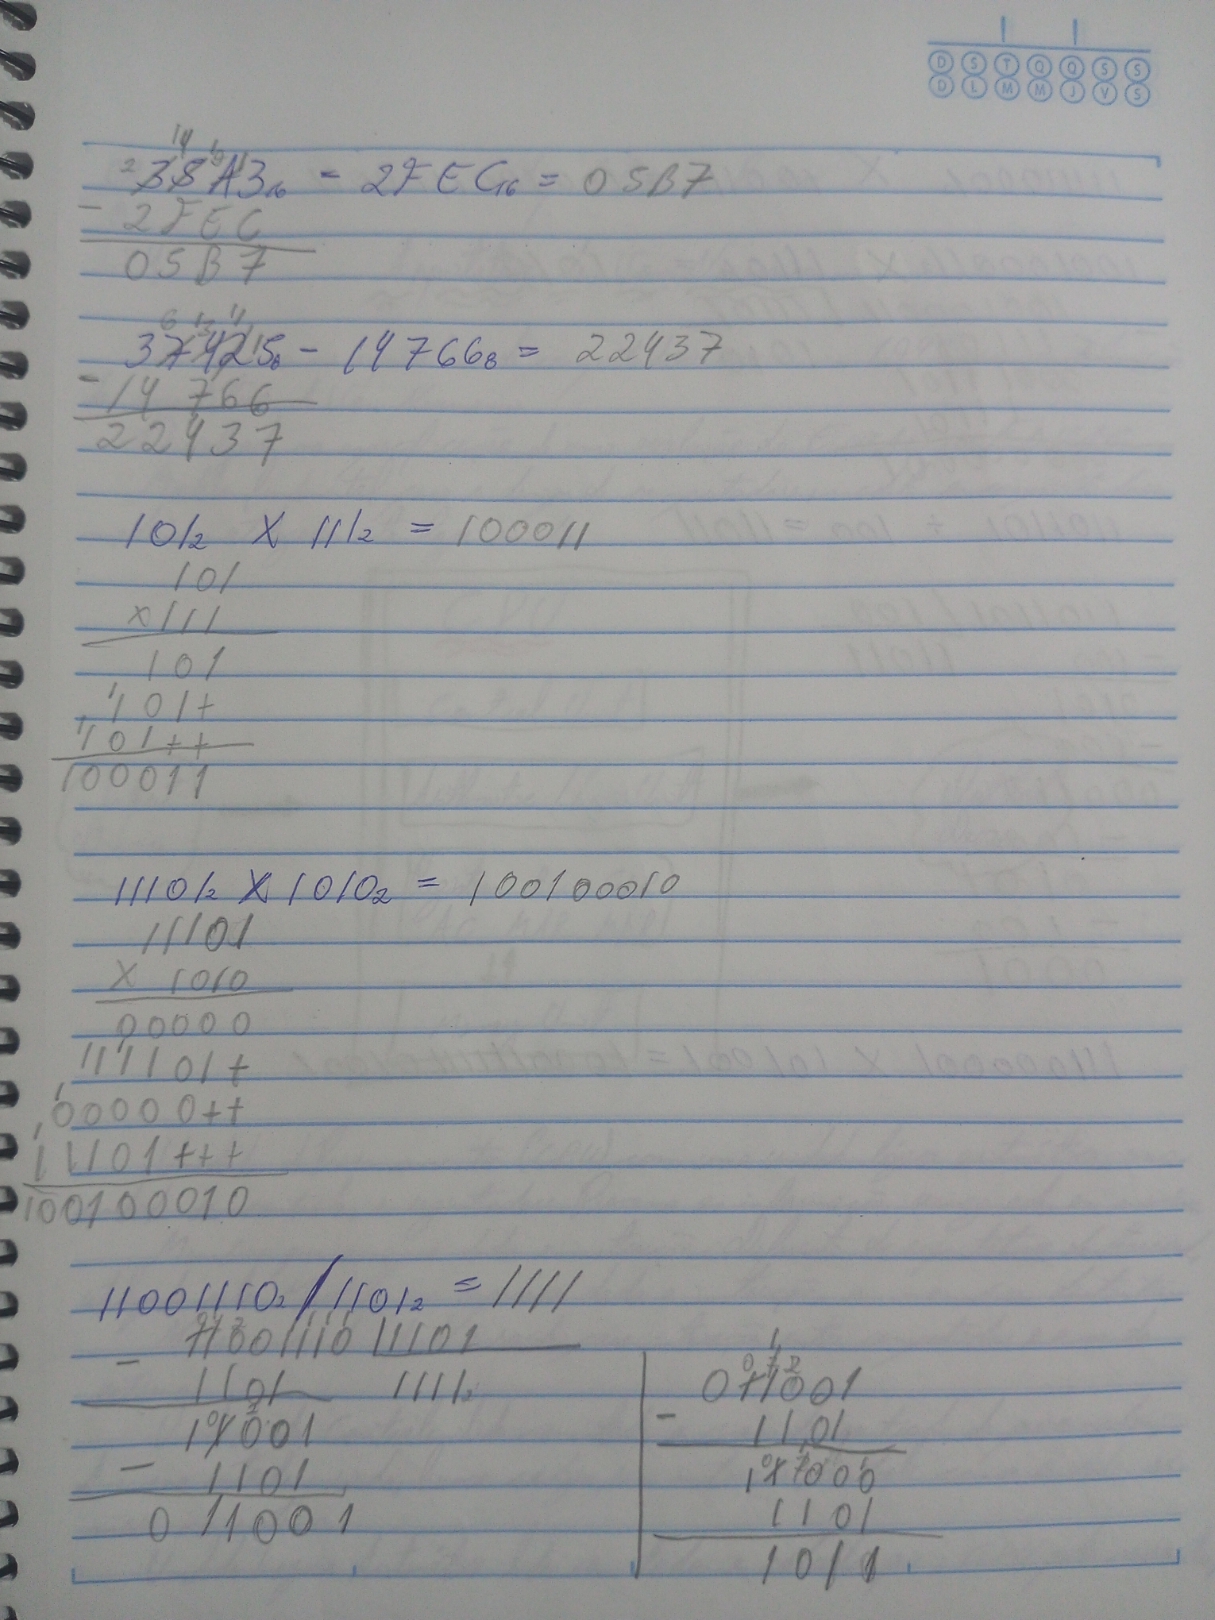 D S T Q Q S S
D L M M J V S
35A3₁₆ - 2FEC₁₆ = 05B7
- 2FEC
05B7
37425₈ - 14766₈ = 22437
- 14 766
22437
101₂ X 111₂ = 100011
101
x111
101
101+
101++
100011
11101₂ X 1010₂ = 100100010
11101
X 1010
00000
11101+
00000++
11101+++
100100010
11001110₂ / 1101₂ = 1111
11001110 1101
- 1101 1111₂
11001
- 1101
011001
011001
- 1101
11000
1101
1011